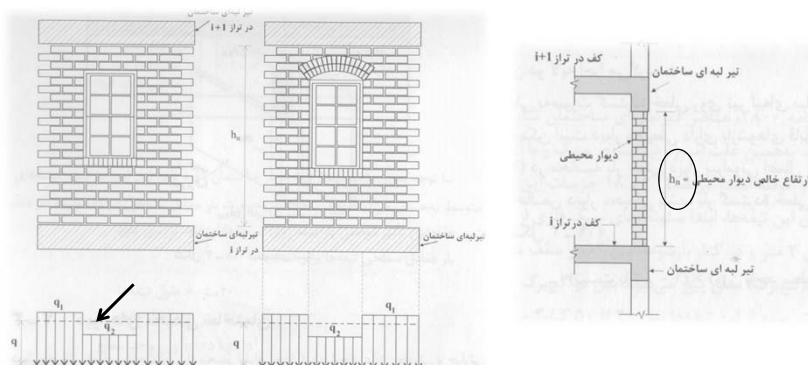 تیر لبه ای ساختمان
در تراز i+1
hn
تیرلبه ای ساختمان
در تراز i
q1
q2
q
q1
q2
کف در تراز i+1
تیر لبه ای ساختمان
دیوار محیطی
hn = ارتفاع خالص دیوار محیطی
کف در تراز i
تیر لبه ای ساختمان